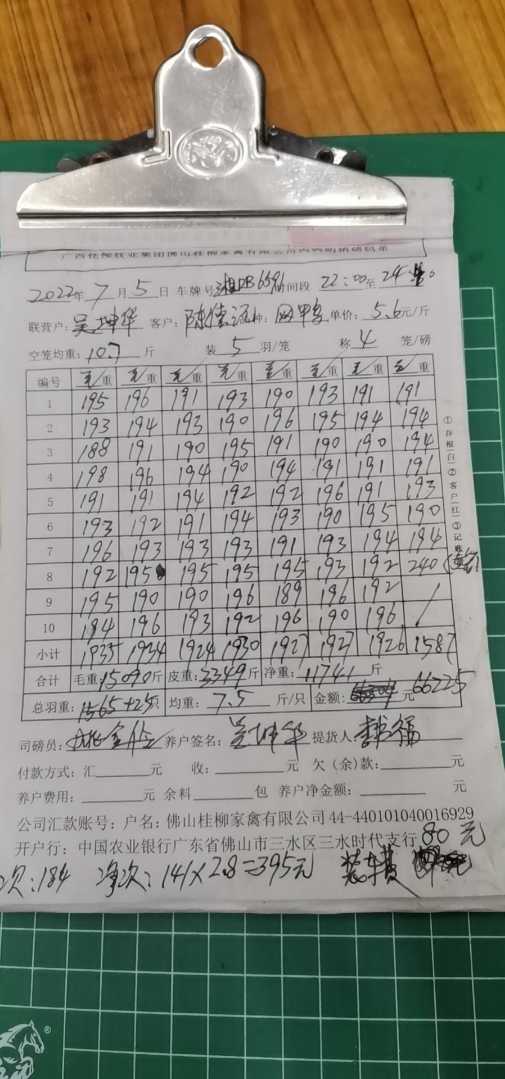 2022年7月5日 车牌号 间段 22:00至24
联营户:吴坤华 客户: 种: 单价:5.6元/斤
空笼均重:10.7斤 装5羽/笼 称4笼/磅
编号 毛重 毛重 毛重 毛重 毛重 毛重 毛重 毛重
1 195 196 191 193 190 193 191 191
2 193 194 193 190 196 195 194 194
3 188 191 190 195 191 190 190 194
4 198 196 194 190 194 191 191 191
5 191 191 194 192 192 196 191 193
6 193 192 191 194 193 190 195 190
7 196 193 193 193 191 193 194 194
8 192 195 195 195 195 193 192 240
9 195 190 190 196 189 196 192 /
10 194 196 193 192 196 190 196
小计 1935 1934 1924 1930 1927 1927 1926 1587
合计 毛重:15090斤 皮重:3349斤 净重:11741斤
总羽重:1565+25只 均重:7.5斤/只 金额:元 66225
司磅员: 养户签名:吴坤华 提货人:李福
付款方式:汇元 收:元 欠(余)款:元
养户费用:元 余料包 养户净金额:元
公司汇款账号:户名:佛山桂柳家禽有限公司44-440101040016929
开户行:中国农业银行广东省佛山市三水区三水时代支行 80元
次:184 净次:141×2.8=395元 装车费
①存根(白)②客户(红)③记账